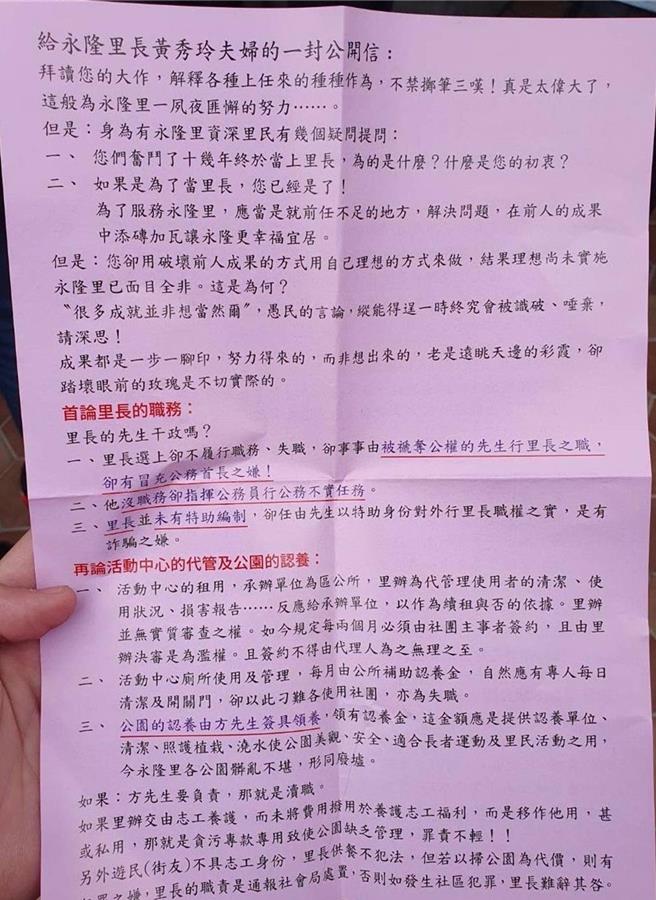 給永隆里長黃秀玲夫婦的一封公開信：
拜讀您的大作，解釋各種上任來的種種作為，不禁擲筆三嘆！真是太偉大了，
這般為永隆里一夙夜匪懈的努力……。
但是：身為有永隆里資深里民有幾個疑問提問：
一、 您們奮鬥了十幾年終於當上里長，為的是什麼？什麼是您的初衷？
二、 如果是為了當里長，您已經是了！
為了服務永隆里，應當是就前任不足的地方，解決問題，在前人的成果
中添磚加瓦讓永隆更幸福宜居。
但是：您卻用破壞前人成果的方式用自己理想的方式來做，結果理想尚未實施
永隆里已面目全非。這是為何？
〝很多成就並非想當然爾〞，愚民的言論，縱能得逞一時終究會被識破、唾棄，
請深思！
成果都是一步一腳印，努力得來的，而非想出來的，老是遠眺天邊的彩霞，卻
踏壞眼前的玫瑰是不切實際的。
首論里長的職務：
里長的先生干政嗎？
一、里長選上卻不履行職務、失職，卻事事由被褫奪公權的先生行里長之職，
卻有冒充公務首長之嫌！
二、他沒職務卻指揮公務員行公務不實任務。
三、里長並未有特助編制，卻任由先生以特助身份對外行里長職權之實，是有
詐騙之嫌。
再論活動中心的代管及公園的認養：
一、 活動中心的租用，承辦單位為區公所，里辦為代管理使用者的清潔、使
用狀況、損害報告……反應給承辦單位，以作為續租與否的依據。里辦
並無實質審查之權。如今規定每兩個月必須由社團主事者簽約，且由里
辦決審是為濫權。且簽約不得由代理人為之無理之至。
二、 活動中心廁所使用及管理，每月由公所補助認養金，自然應有專人每日
清潔及開關門，卻以此刁難各使用社團，亦為失職。
三、 公園的認養由方先生簽具領養，領有認養金，這金額應是提供認養單位、
清潔、照護植栽、澆水使公園美觀、安全、適合長者運動及里民活動之用，
今永隆里各公園髒亂不堪，形同廢墟。
如果：方先生要負責，那就是瀆職。
如果里辦交由志工養護，而未將費用撥用於養護志工福利，而是移作他用，甚
或私用，那就是貪污專款專用致使公園缺乏管理，罪責不輕！！
另外遊民(街友)不具志工身份，里長供餐不犯法，但若以掃公園為代價，則有
罪之嫌，里長的職責是通報社會局處置，否則如發生社區犯罪，里長難辭其咎。